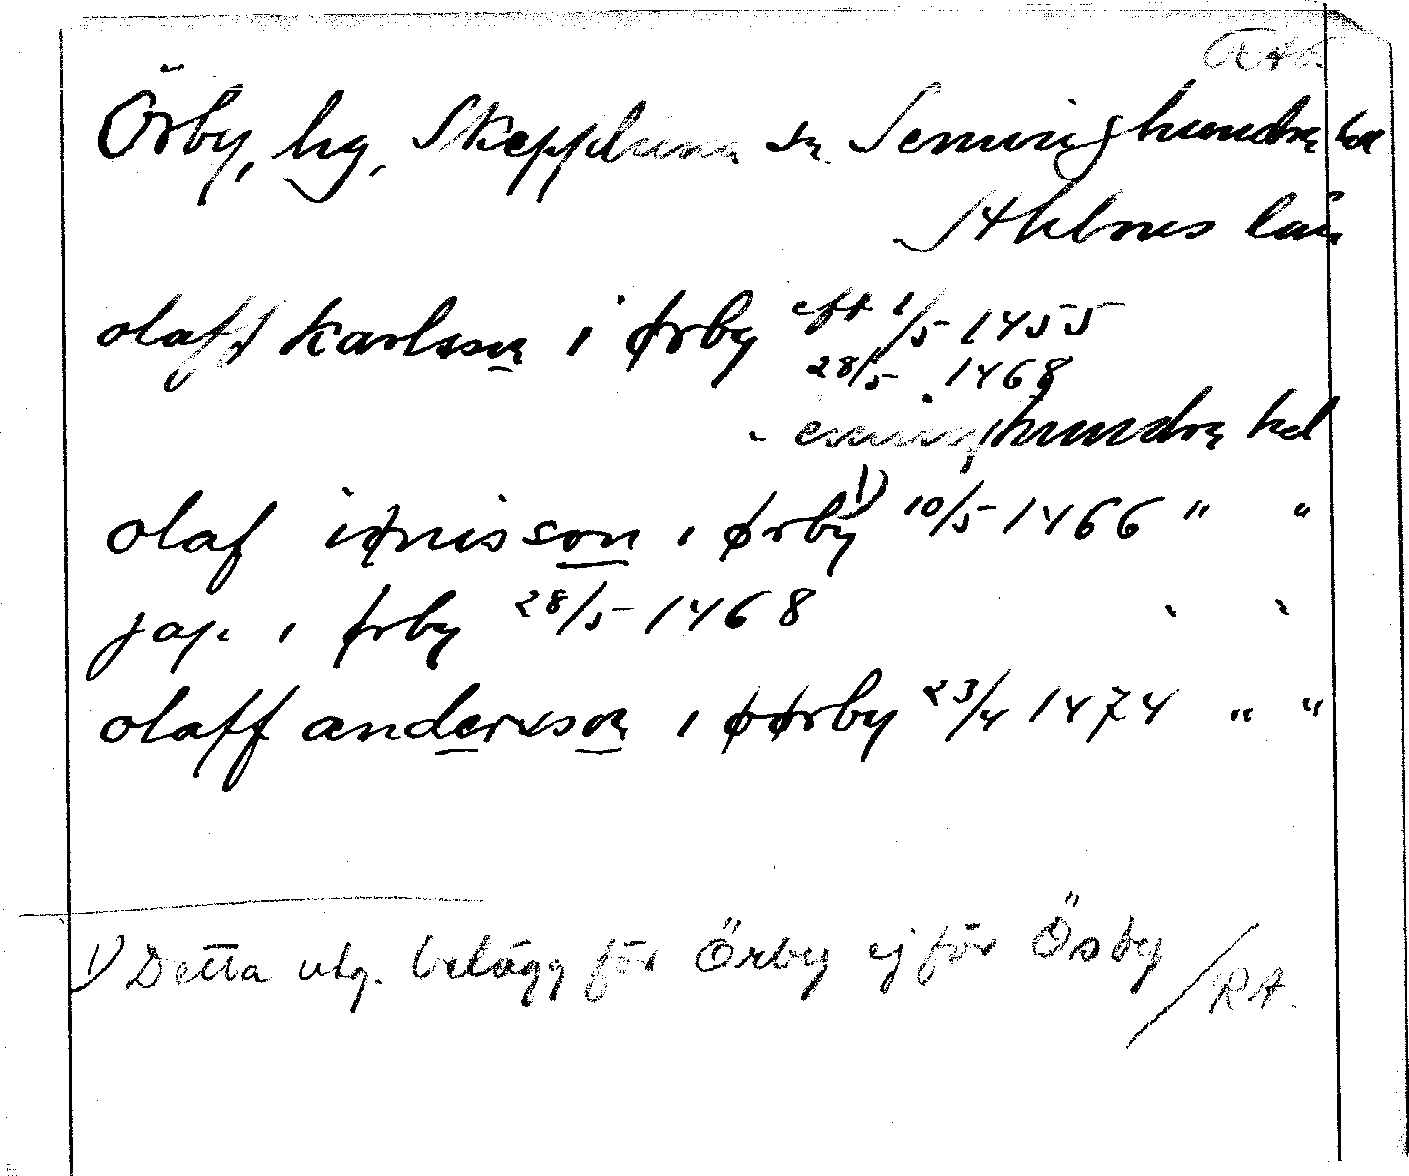 Örby, hg, Skepptuna sn Seminghundra hd
Sthlms län
olaff karlsson i ørby eft 1/5 1455
28/5 1468
Seminghundra hd
olaf iønisson i ørby 1) 10/5 1466 " "
jap. i ørby 28/5 1468 " "
olaff andersson i øørby 23/4 1474 " "
1) Detta utg. belägg för Örby ej för Ösby /RA.